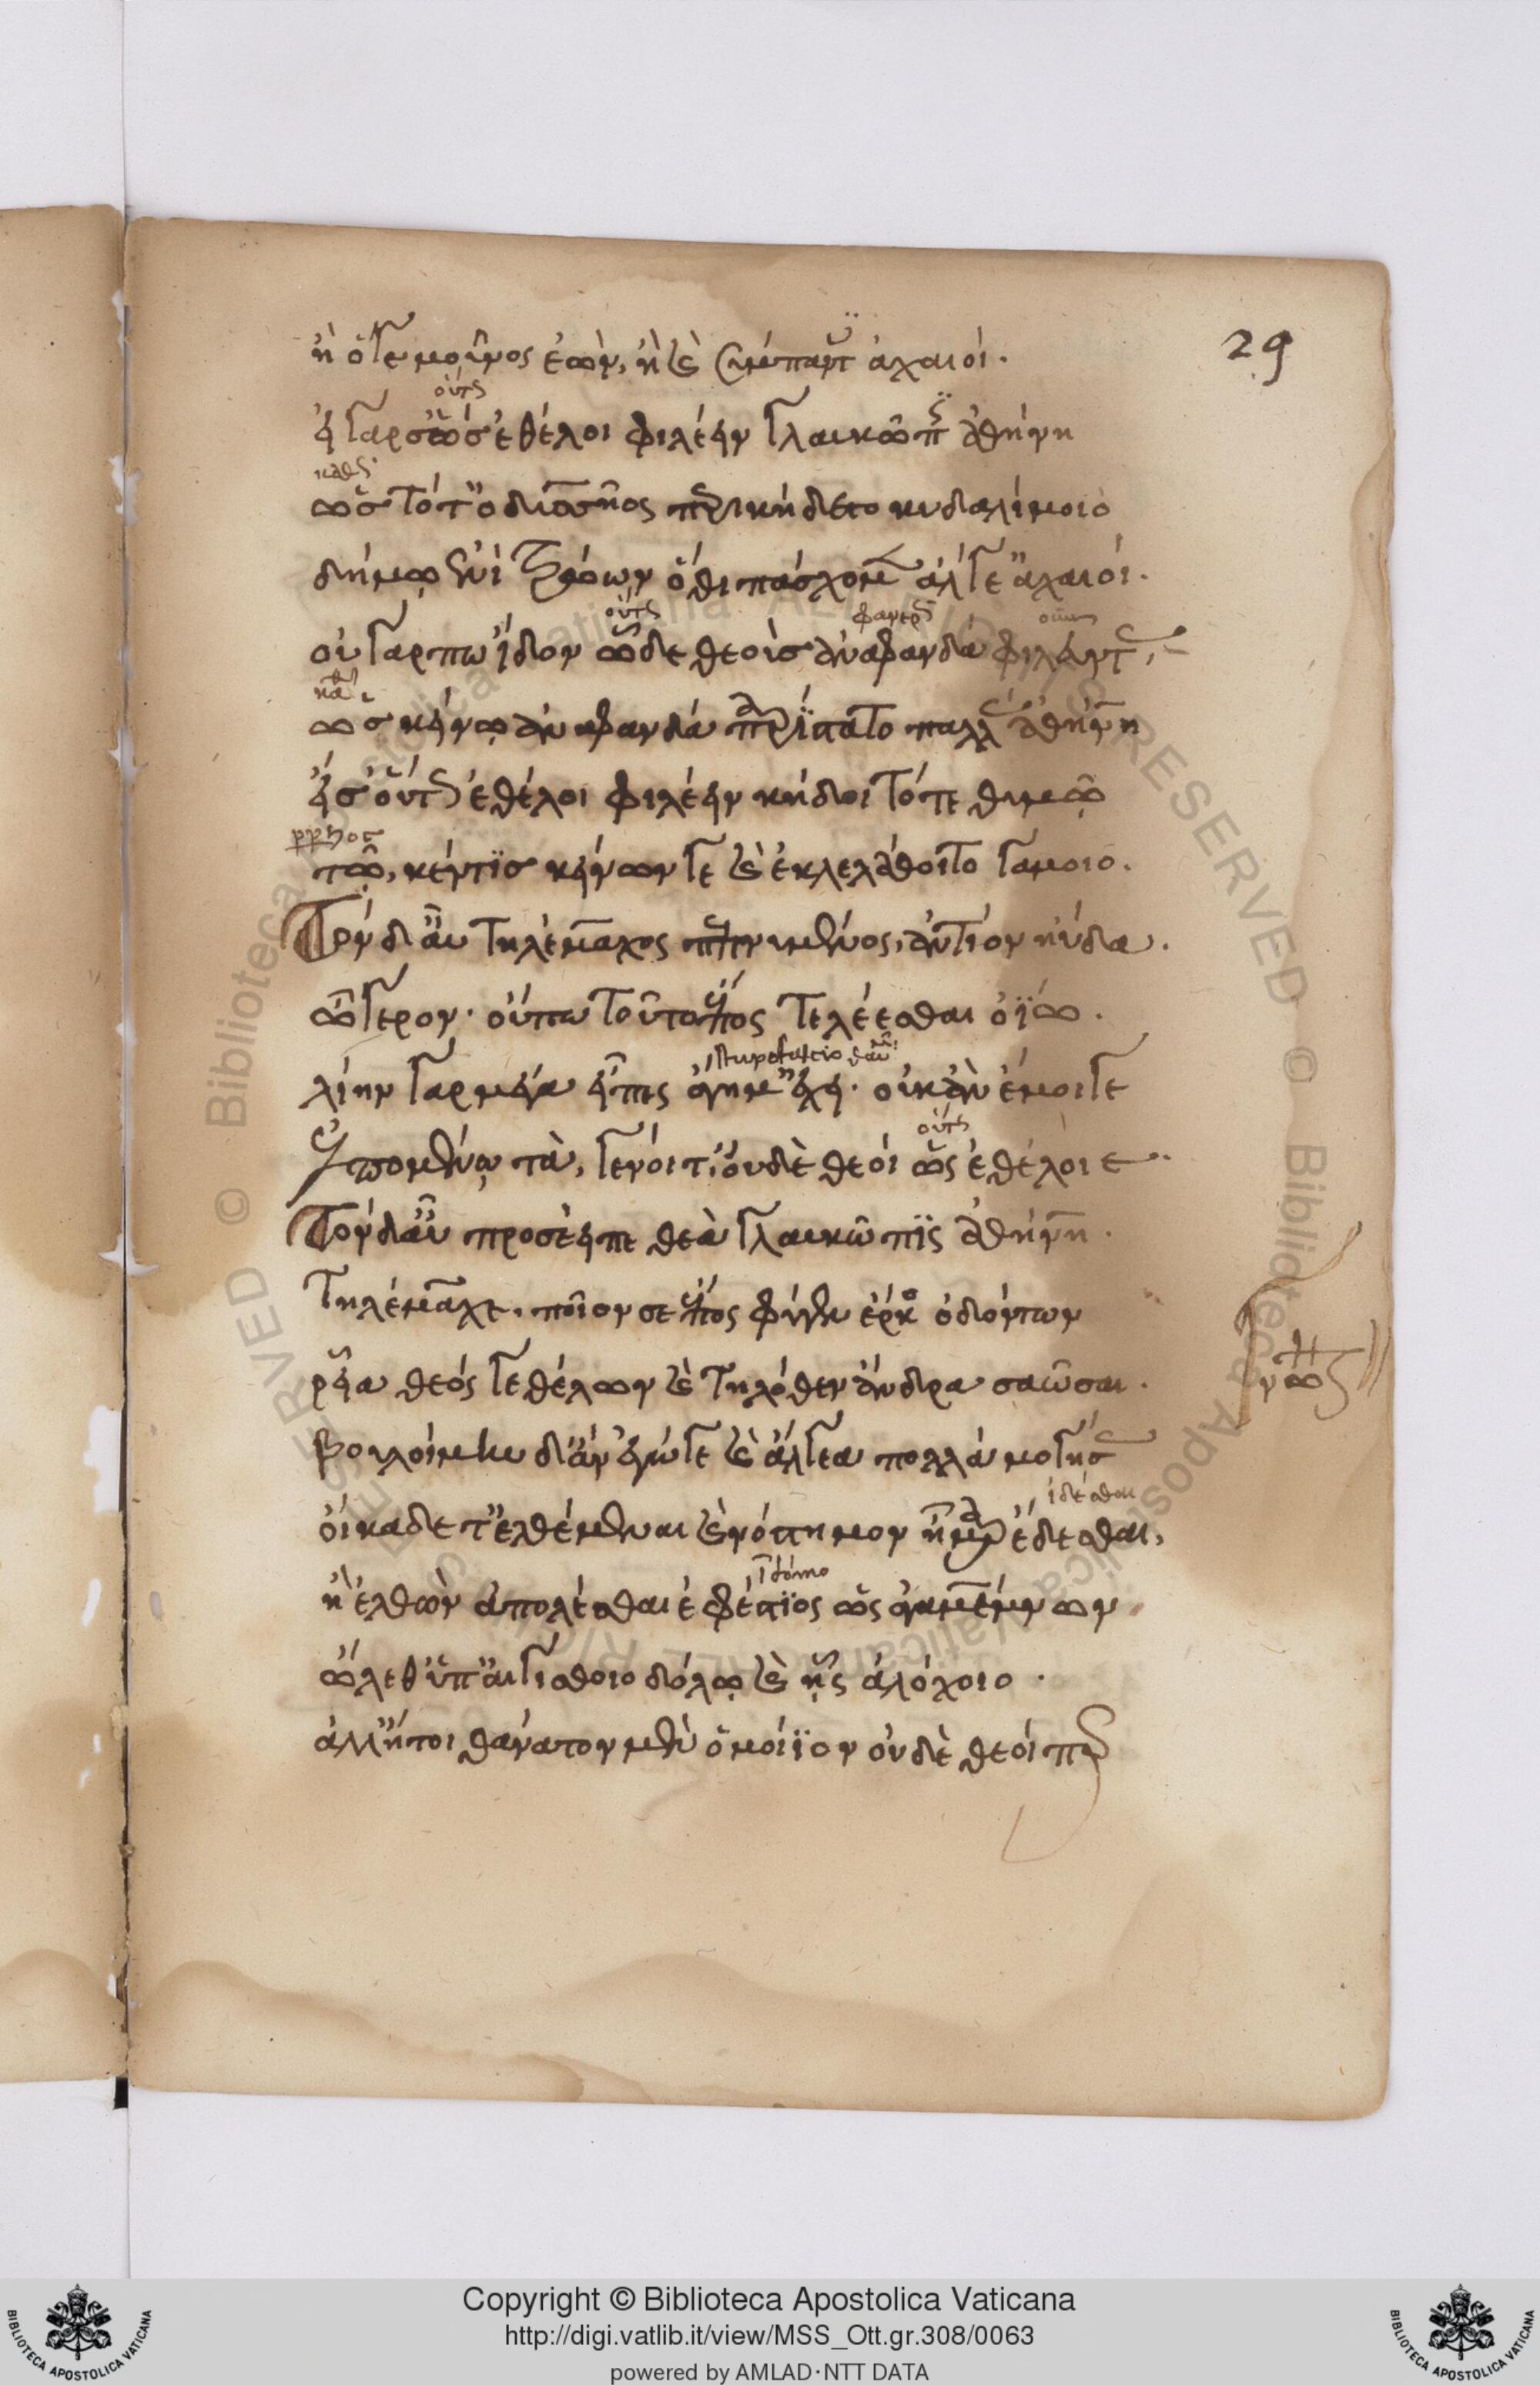 29
ἢ ὅγε μοῦνος ἐὼν, ἢ καὶ σύμπαντες ἀχαιοί.
οὕτως
εἰ γάρ σ' ὣς ἐθέλοι φιλέειν γλαυκῶπις ἀθήνη
καθὼς
ὡς τότ' ὀδυσσῆος περικήδετο κυδαλίμοιο
δήμῳ ἐνὶ τρώων ὅθι πάσχομεν ἄλγε' ἀχαιοί.
οὕτως φανερῶς
οὐ γάρ πω ἴδον ὧδε θεοὺς ἀναφανδὰ φιλεῦντας,
ὡς κείνῳ ἀναφανδὰ παρίστατο παλλὰς ἀθήνη
εἴ σ' οὕτως ἐθέλοι φιλέειν κήδοιτό τε θυμῷ
τῷ, κέν τις κείνων γε καὶ ἐκλελάθοιτο γάμοιο.
Τὸν δ' αὖ τηλέμαχος πεπνυμένος, ἀντίον ηὔδα.
ὦ γέρον· οὔπω τοῦτο ἔπος τελέεσθαι ὀΐω.
stupefatio
λίην γὰρ μέγα εἶπες ἄγη μ' ἔχει. οὐκ ἂν ἐμοί γε
οὕτως
ἐλπομένῳ τὰ γένοιτ' οὐδ' εἰ θεοὶ ὣς ἐθέλοιεν.
Τὸν δ' αὖ προσέειπε θεὰ γλαυκῶπις ἀθήνη.
Τηλέμαχε, ποῖόν σε ἔπος φύγεν ἕρκος ὀδόντων
ῥεῖα θεός γ' ἐθέλων καὶ τηλόθεν ἄνδρα σαώσαι.
βουλοίμην δ' ἂν ἐγώ γε καὶ ἄλγεα πολλὰ μογήσας
ἰδέσθαι
οἴκαδέ τ' ἐλθέμεναι καὶ νόστιμον ἦμαρ ἰδέσθαι,
ἢ ἐλθὼν ἀπολέσθαι ἐφέστιος ὡς ἀγαμέμνων
ὤλεθ' ὑπ' αἰγίσθοιο δόλῳ καὶ ἧς ἀλόχοιο.
ἀλλ' ἤτοι θάνατον μὲν ὁμοίϊον οὐδὲ θεοί περ
Copyright © Biblioteca Apostolica Vaticana
http://digi.vatlib.it/view/MSS_Ott.gr.308/0063
powered by AMLAD·NTT DATA
BIBLIOTECA APOSTOLICA VATICANA
BIBLIOTECA APOSTOLICA VATICANA